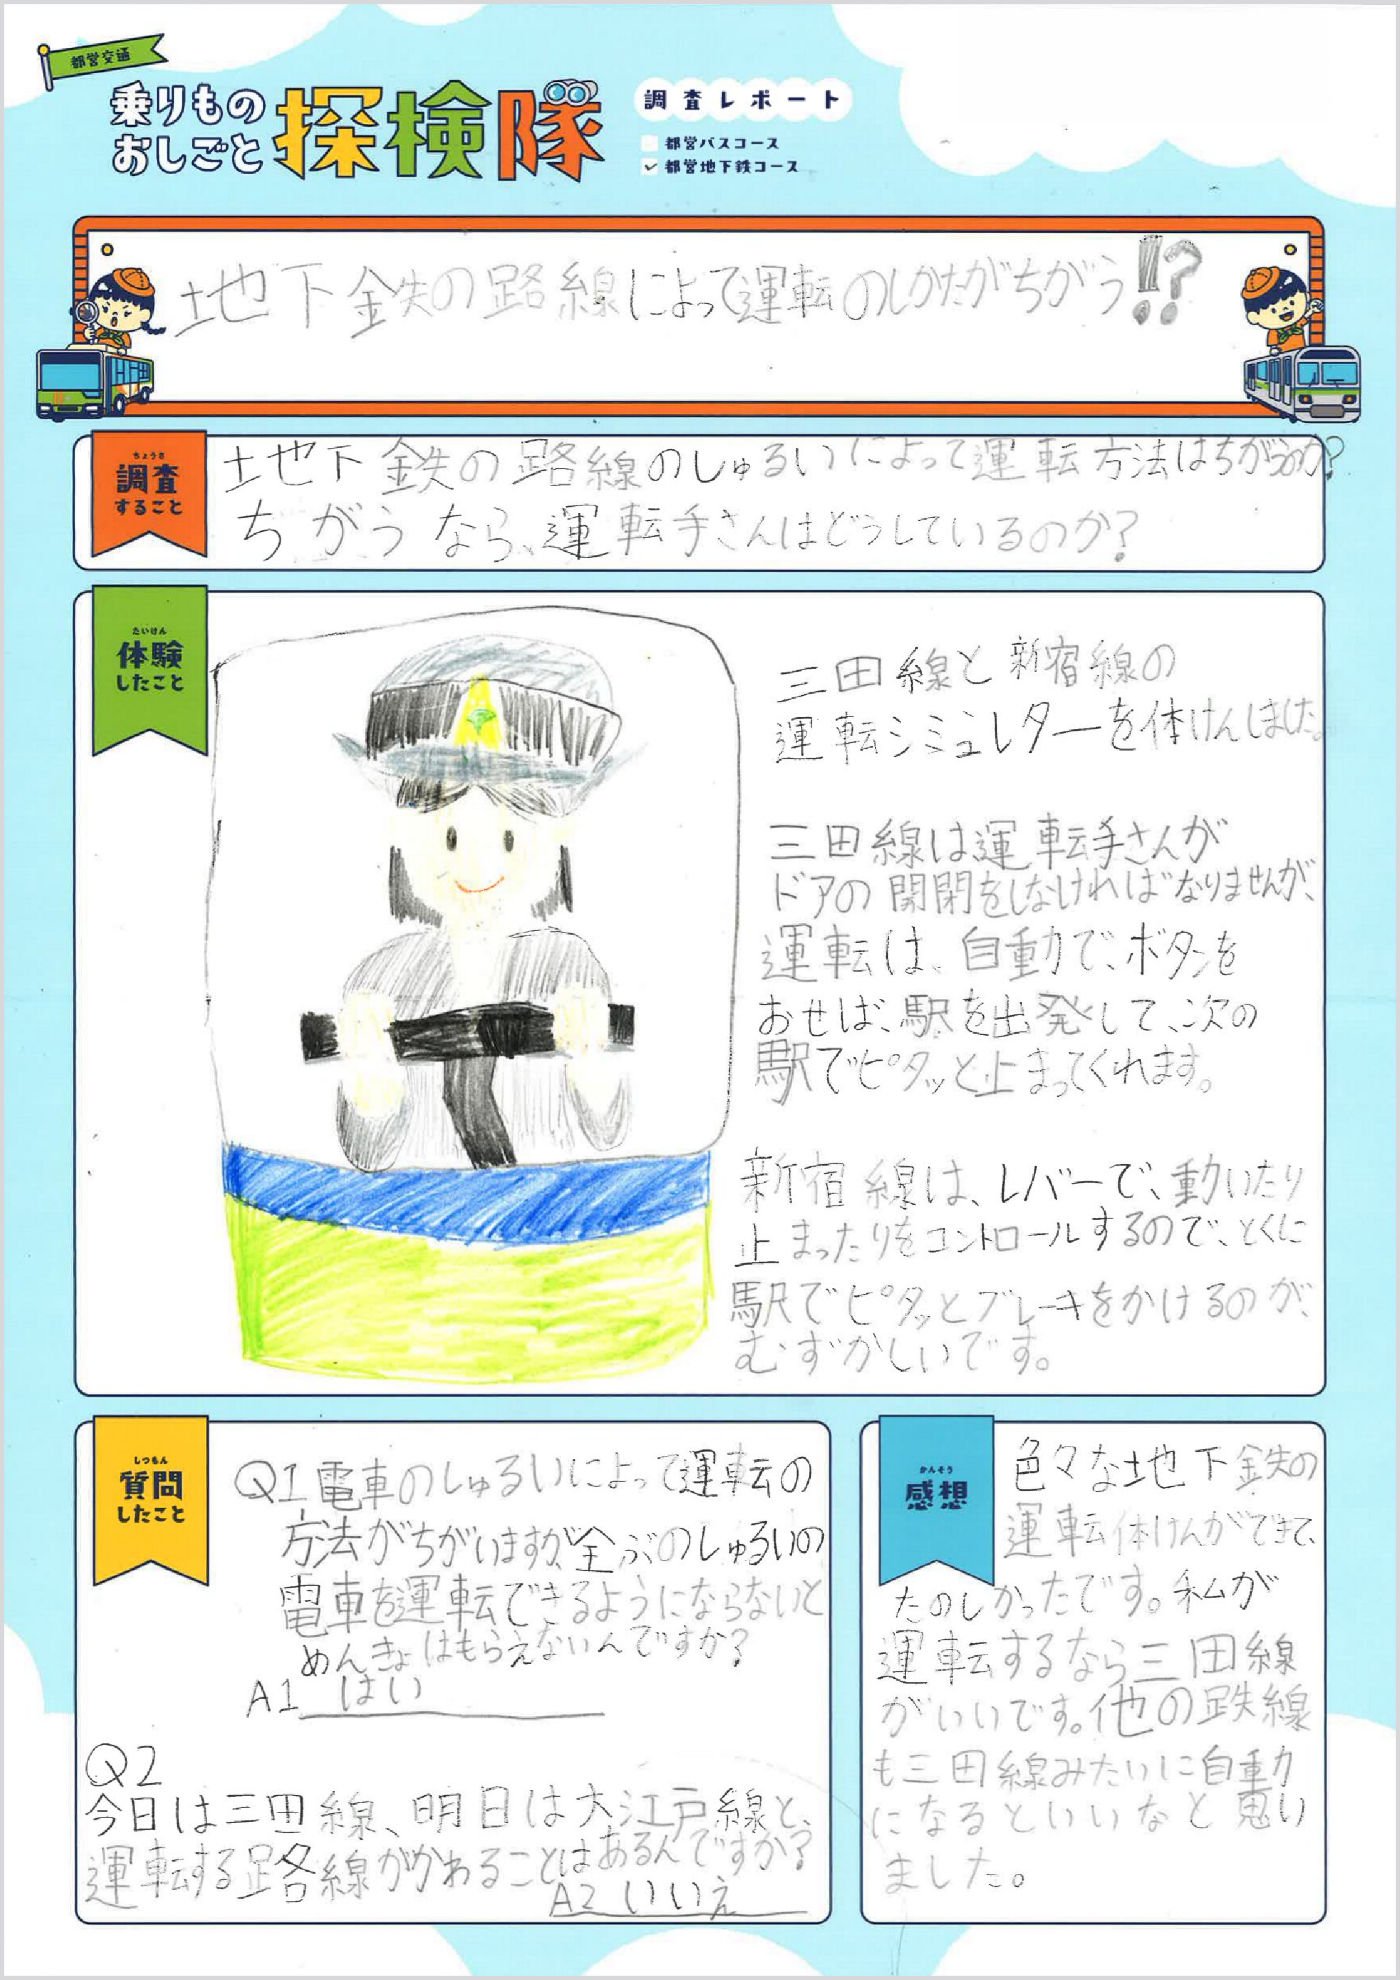 都営交通
乗りもの
おしごと
探検隊
調査レポート
都営バスコース
✓ 都営地下鉄コース
地下鉄の路線によって運転のしかたがちがう!?
ちょうさ
調査
すること
地下鉄の路線のしゅるいによって運転方法はちがうのか?
ちがうなら、運転手さんはどうしているのか?
たいけん
体験
したこと
三田線と新宿線の
運転シミュレターを体けんしました。
三田線は運転手さんが
ドアの開閉をしなければなりませんが、
運転は、自動で、ボタンを
おせば、駅を出発して、次の
駅でピタッと止まってくれます。
新宿線は、レバーで、動いたり
止まったりをコントロールするので、とくに
駅でピタッとブレーキをかけるのが、
むずかしいです。
しつもん
質問
したこと
Q1 電車のしゅるいによって運転の
方法がちがいますが、全ぶのしゅるいの
電車を運転できるようにならないと
めんきょはもらえないんですか?
A1 はい
Q2
今日は三田線、明日は大江戸線と、
運転する路線がかわることはあるんですか?
A2 いいえ
かんそう
感想
色々な地下鉄の
運転体けんができて、
たのしかったです。私が
運転するなら三田線
がいいです。他の鉄線
も三田線みたいに自動
になるといいなと思い
ました。